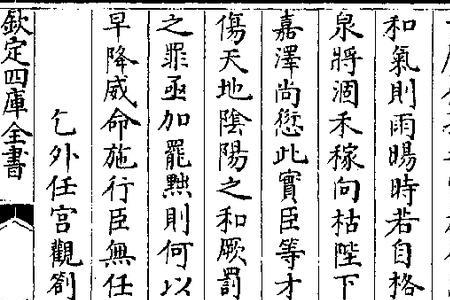 和氣則雨暘時若自格
泉將涸禾稼向枯陛下
嘉澤尚愆此實臣等才
傷天地隂陽之和厥罰
之罪亟加罷黜則何以
早降威命施行臣無任
乞外任宫觀劄
欽定四庫全書